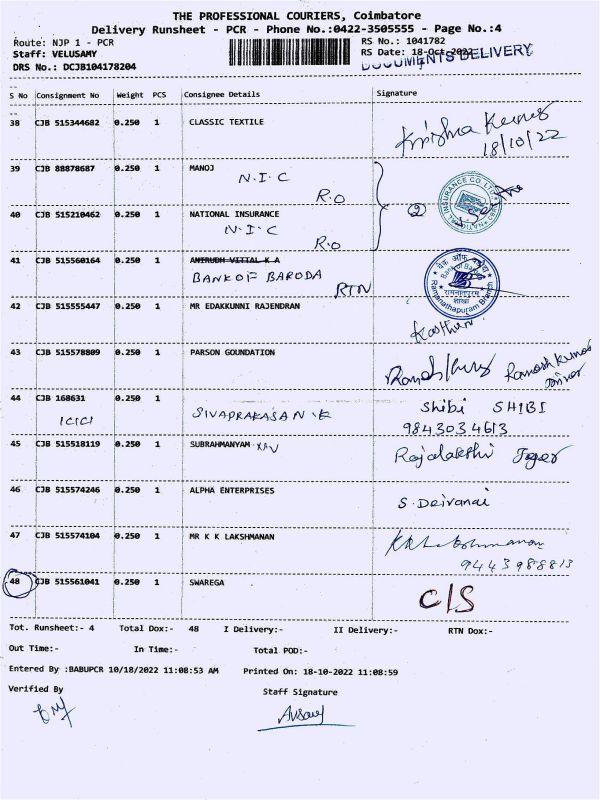 THE PROFESSIONAL COURIERS, Coimbatore
Delivery Runsheet - PCR - Phone No.:0422-3505555 - Page No.:4
Route: NJP 1 - PCR RS No.: 1041782
Staff: VELUSAMY RS Date: 18-Oct-2022
DRS No.: DCJB104178204 DOCUMENTS DELIVERY
S No Consignment No Weight PCS Consignee Details Signature
38 CJB 515344682 0.250 1 CLASSIC TEXTILE Krishna Kumar
18/10/22
39 CJB 88878687 0.250 1 MANOJ
N.I.C
R.O
40 CJB 515210462 0.250 1 NATIONAL INSURANCE ②
N.I.C
R.O
41 CJB 515560164 0.250 1 ANIRUDH VITTAL K A
BANK OF BARODA
RTN
बैंक ऑफ़ बड़ौदा
Bank of Baroda
रामनाथपुरम
शाखा
Ramanathapuram Branch
42 CJB 515555447 0.250 1 MR EDAKKUNNI RAJENDRAN
43 CJB 515578809 0.250 1 PARSON GOUNDATION Ramesh Kumar
44 CJB 168631 0.250 1 SIVAPRAKASAN.K Shibi SHIBI
ICICI 9843034613
45 CJB 515518119 0.250 1 SUBRAHMANYAM
46 CJB 515574246 0.250 1 ALPHA ENTERPRISES S. Deivanai
47 CJB 515574104 0.250 1 MR K K LAKSHMANAN KK Lakshmanan
9443988813
48 CJB 515561041 0.250 1 SWAREGA C/S
Tot. Runsheet:- 4 Total Dox:- 48 I Delivery:- II Delivery:- RTN Dox:-
Out Time:- In Time:- Total POD:-
Entered By :BABUPCR 10/18/2022 11:08:53 AM Printed On: 18-10-2022 11:08:59
Verified By Staff Signature